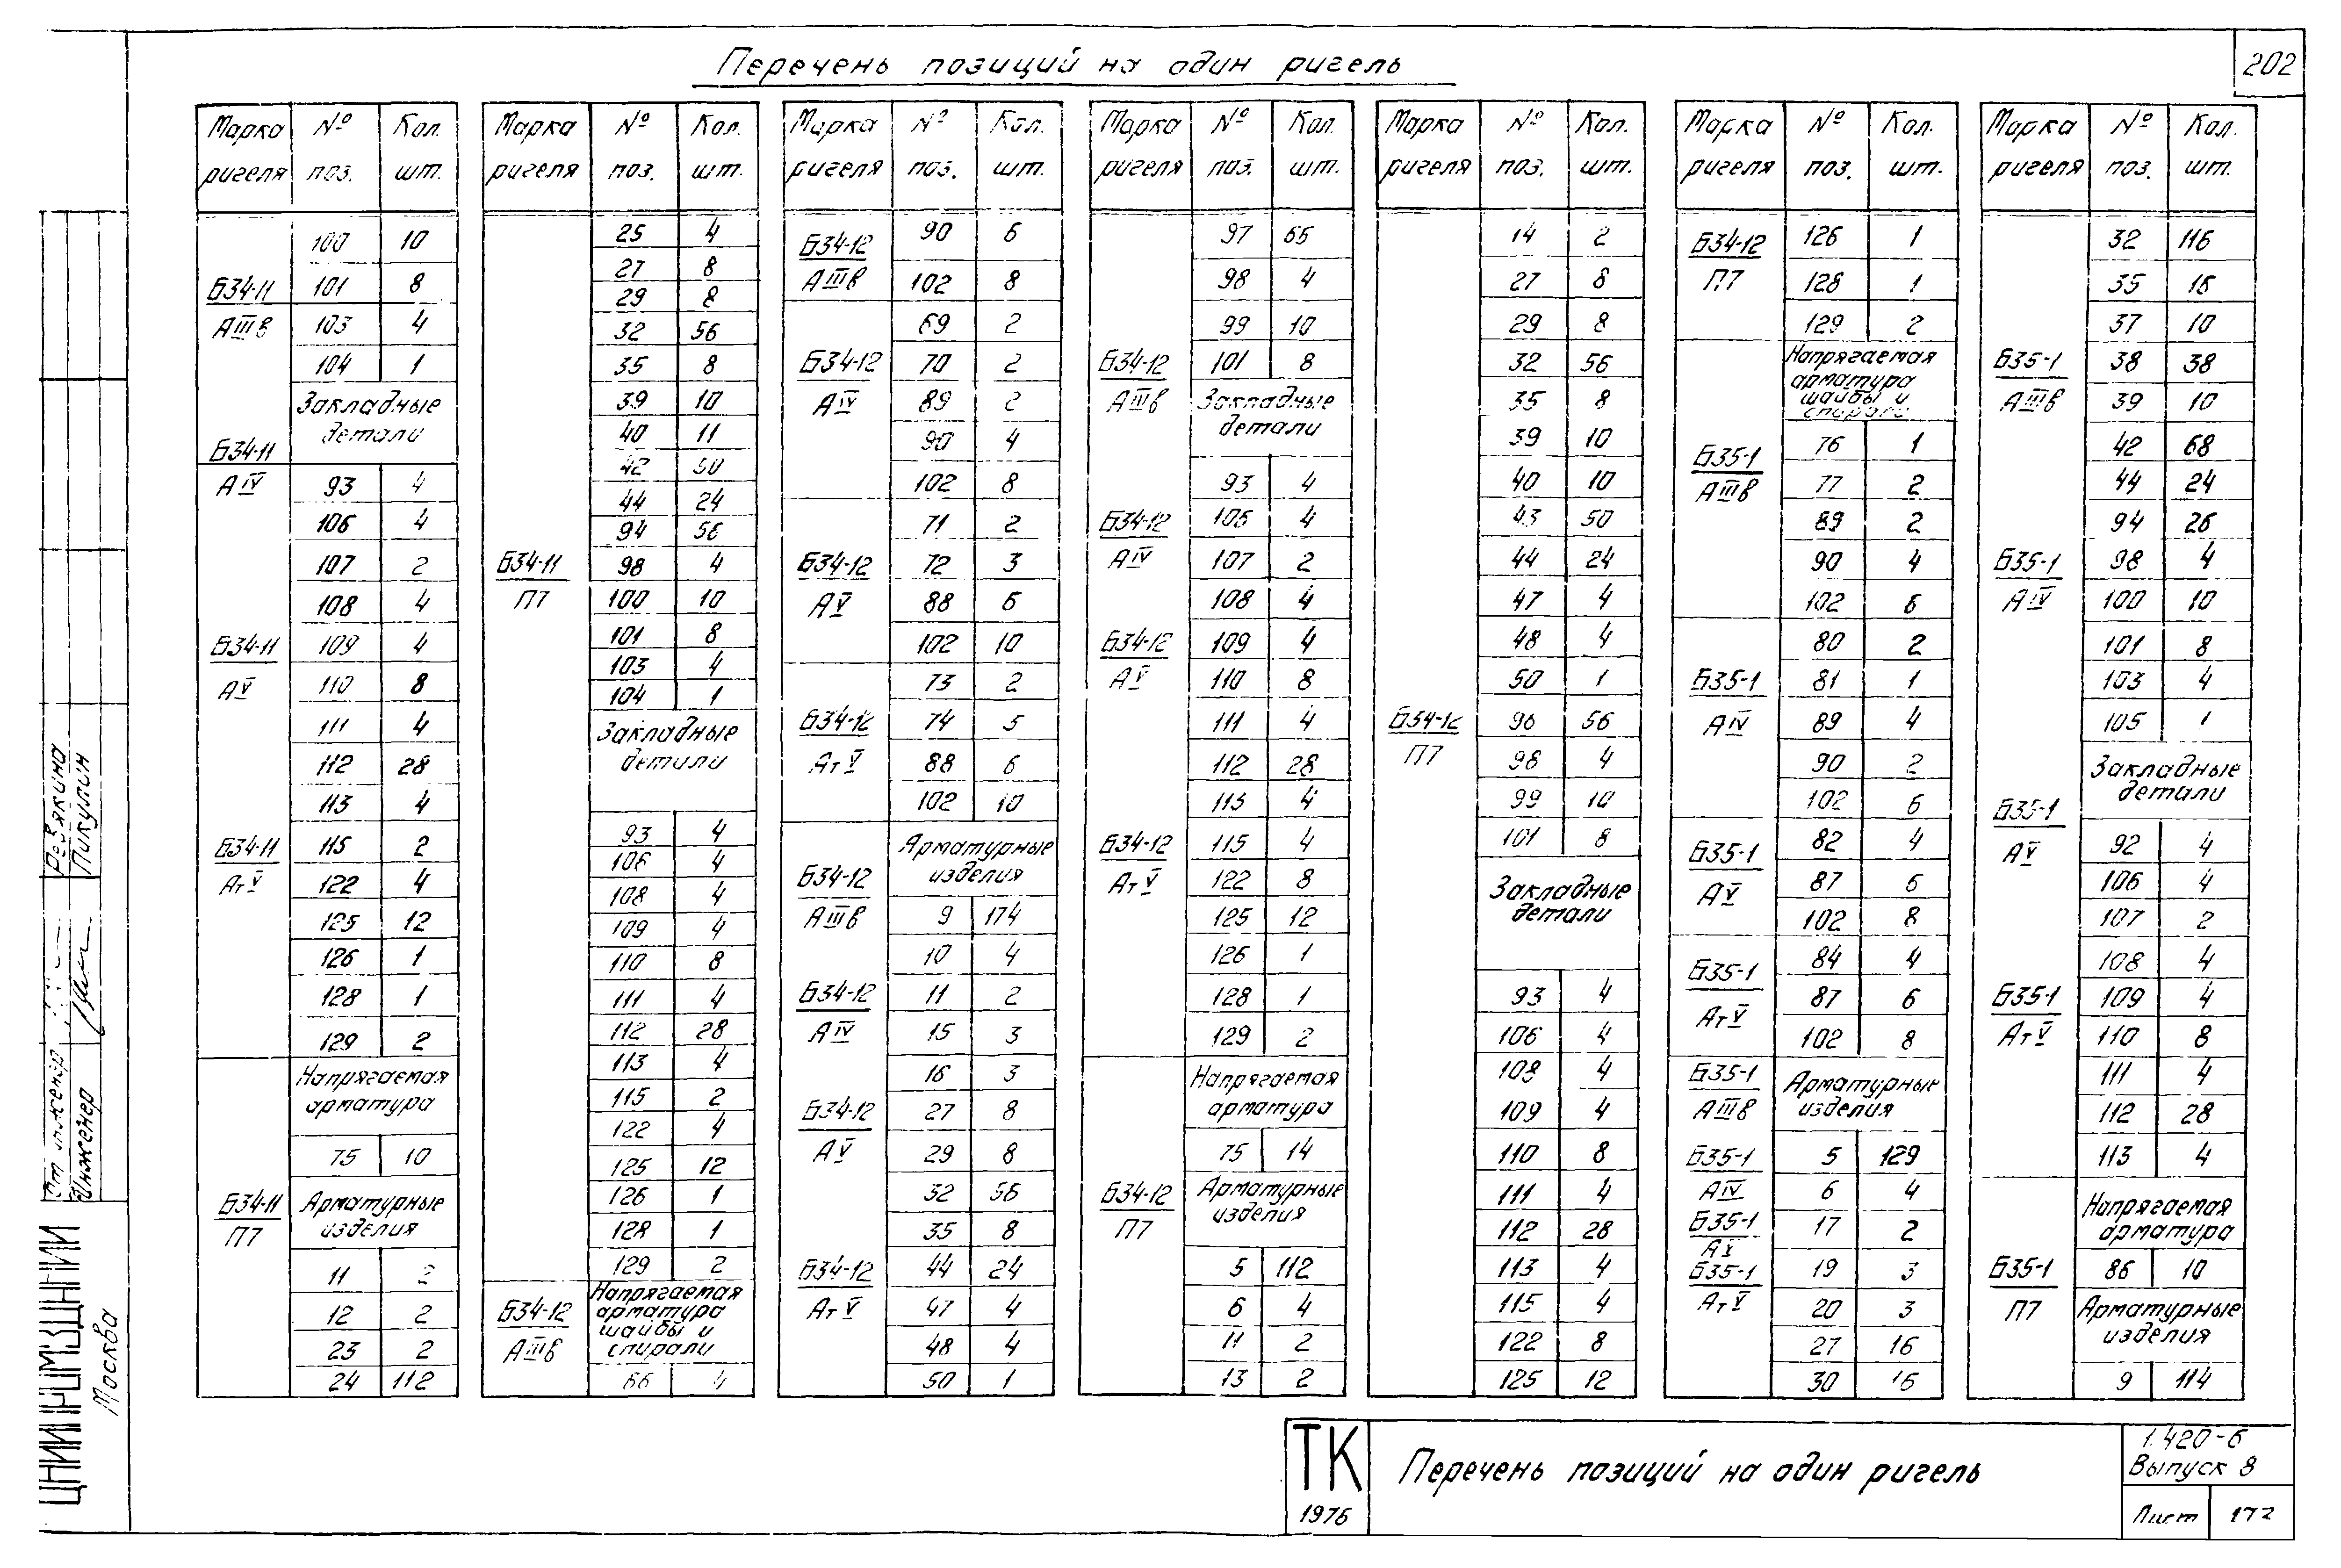 Перечень позиций на один ригель
202
Марка ригеля № поз. Кол. шт.
100 10
Б34-11 101 8
АIIIв 103 4
104 1
Закладные
детали
Б34-11
АIV 93 4
106 4
107 2
108 4
Б34-11 109 4
АV 110 8
111 4
112 28
113 4
Б34-11 115 2
АтV 122 4
125 12
126 1
128 1
129 2
Напрягаемая
арматура
75 10
Б34-11 Арматурные
П7 изделия
11 2
12 2
23 2
24 112
Марка ригеля № поз. Кол. шт.
25 4
27 8
29 8
32 56
35 8
39 10
40 11
42 50
44 24
94 56
Б34-11 98 4
П7 100 10
101 8
103 4
104 1
Закладные
детали
93 4
106 4
108 4
109 4
110 8
111 4
112 28
113 4
115 2
122 4
125 12
126 1
128 1
129 2
Б34-12 Напрягаемая
арматура
шайбы и
АIIIв спирали
66 4
Марка ригеля № поз. Кол. шт.
Б34-12 90 6
АIIIв 102 8
69 2
Б34-12 70 2
АIV 89 2
90 4
102 8
71 2
Б34-12 72 3
АV 88 6
102 10
73 2
Б34-12 74 5
АтV 88 6
102 10
Арматурные
Б34-12 изделия
АIIIв 9 174
10 4
Б34-12 11 2
АIV 15 3
16 3
Б34-12 27 8
АV 29 8
32 56
35 8
Б34-12 44 24
АтV 47 4
48 4
50 1
Марка ригеля № поз. Кол. шт.
97 66
98 4
99 10
Б34-12 101 8
АIIIв Закладные
детали
93 4
Б34-12 106 4
АIV 107 2
108 4
Б34-12 109 4
АV 110 8
111 4
112 28
113 4
Б34-12 115 4
АтV 122 8
125 12
126 1
128 1
129 2
Напрягаемая
арматура
75 14
Б34-12 Арматурные
П7 изделия
5 112
6 4
11 2
13 2
Марка ригеля № поз. Кол. шт.
14 2
27 8
29 8
32 56
35 8
39 10
40 10
43 50
44 24
47 4
48 4
50 1
Б34-12 96 56
П7 98 4
99 10
101 8
Закладные
детали
93 4
106 4
108 4
109 4
110 8
111 4
112 28
113 4
115 4
122 8
125 12
Марка ригеля № поз. Кол. шт.
Б34-12 126 1
П7 128 1
129 2
Напрягаемая
арматура
шайбы и
спирали
Б35-1 76 1
АIIIв 77 2
89 2
90 4
102 6
80 2
Б35-1 81 1
АIV 89 4
90 2
102 6
Б35-1 82 4
АV 87 6
102 8
Б35-1 84 4
АтV 87 6
102 8
Б35-1 Арматурные
АIIIв изделия
Б35-1 5 129
АIV 6 4
Б35-1 17 2
АV
Б35-1 19 3
АтV 20 3
27 16
30 16
Марка ригеля № поз. Кол. шт.
32 116
35 16
37 10
Б35-1 38 38
АIIIв 39 10
42 68
44 24
94 26
Б35-1 98 4
АIV 100 10
101 8
103 4
105 1
Закладные
детали
Б35-1
АV 92 4
106 4
107 2
108 4
Б35-1 109 4
АтV 110 8
111 4
112 28
113 4
Напрягаемая
арматура
Б35-1 86 10
П7 Арматурные
изделия
9 114
Ревякина
Пикулин
Ст. инженер
Инженер
ЦНИИПРОМЗДАНИЙ
Москва
ТК
1976
Перечень позиций на один ригель
1.420-6
Выпуск 8
Лист 172